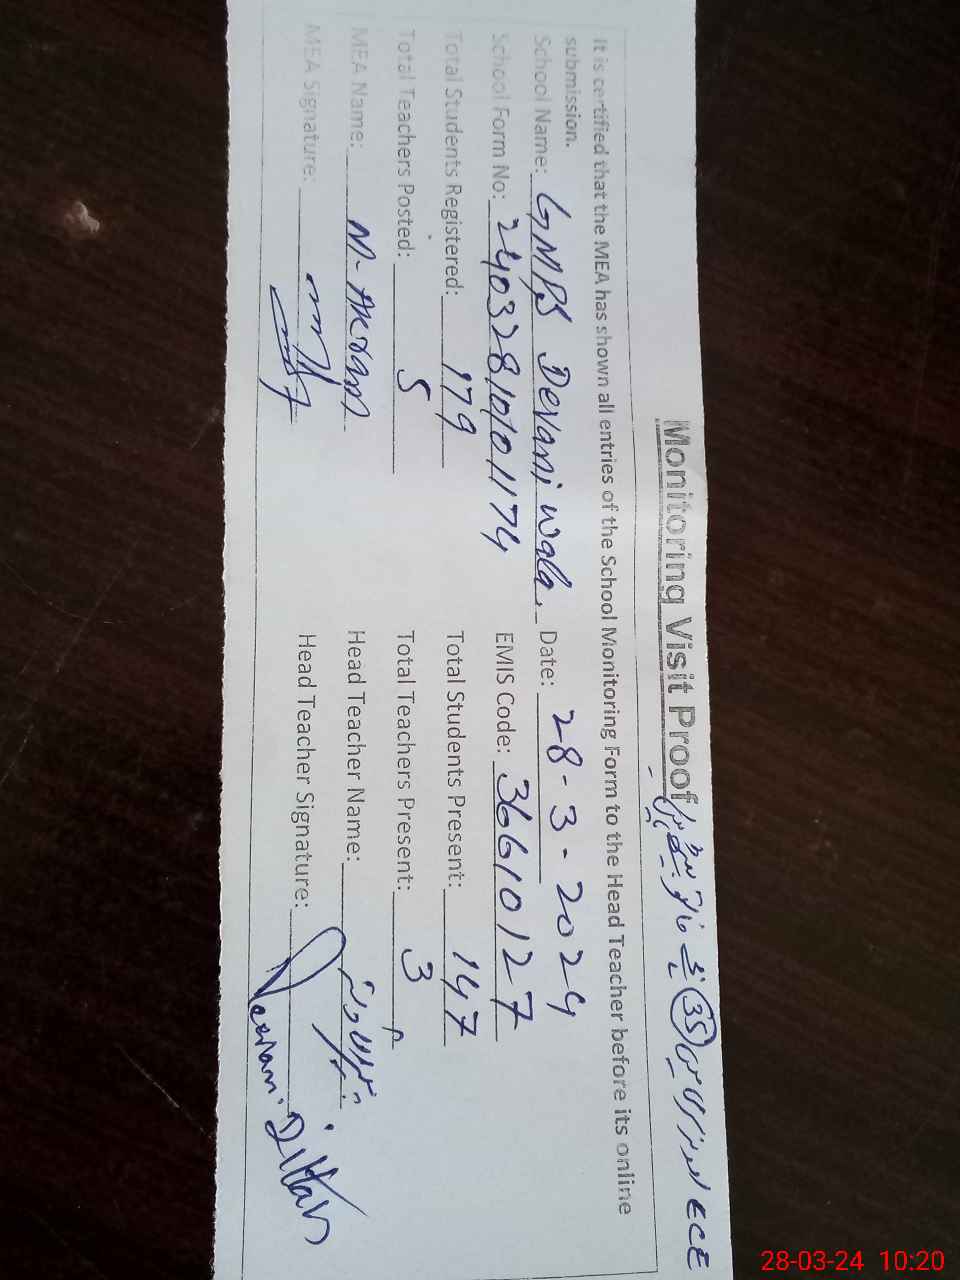 Monitoring Visit Proof
ECE 35
It is certified that the MEA has shown all entries of the School Monitoring Form to the Head Teacher before its online
submission.
School Name: GMPS Devani wala. Date: 28-3-2024
School Form No: 2403281010 1174 EMIS Code: 36610127
Total Students Registered: 179 Total Students Present: 147
Total Teachers Posted: 5 Total Teachers Present: 3
MEA Name: M- Akram Head Teacher Name:
MEA Signature: Head Teacher Signature:
28-03-24 10:20